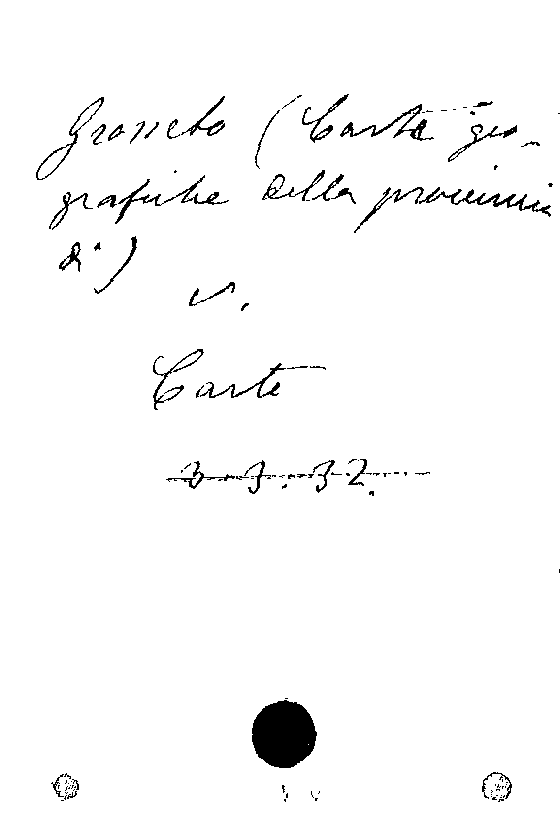 Grosseto (Carte geo-
grafiche della provincia
di)
v.
Carte
3.3.32.